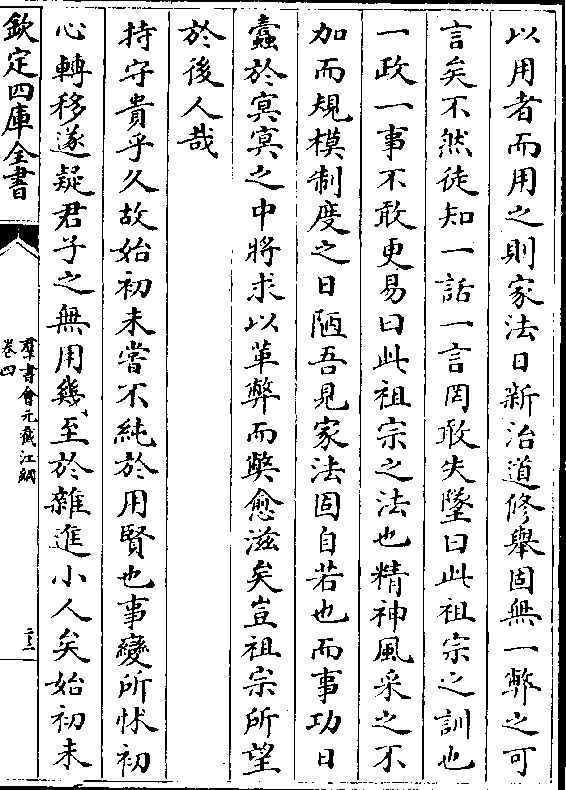 以用者而用之則家法日新治道修舉固無一弊之可
言矣不然徒知一話一言罔敢失墜曰此祖宗之訓也
一政一事不敢更易曰此祖宗之法也精神風采之不
加而規模制度之日陋吾見家法固自若也而事功日
蠹於冥冥之中將求以革弊而弊愈滋矣豈祖宗所望
於後人哉
持守貴乎久故始初未嘗不純於用賢也事變所怵初
心轉移遂疑君子之無用幾至於雜進小人矣始初未
欽定四庫全書
羣書會元截江網
卷四
二十二